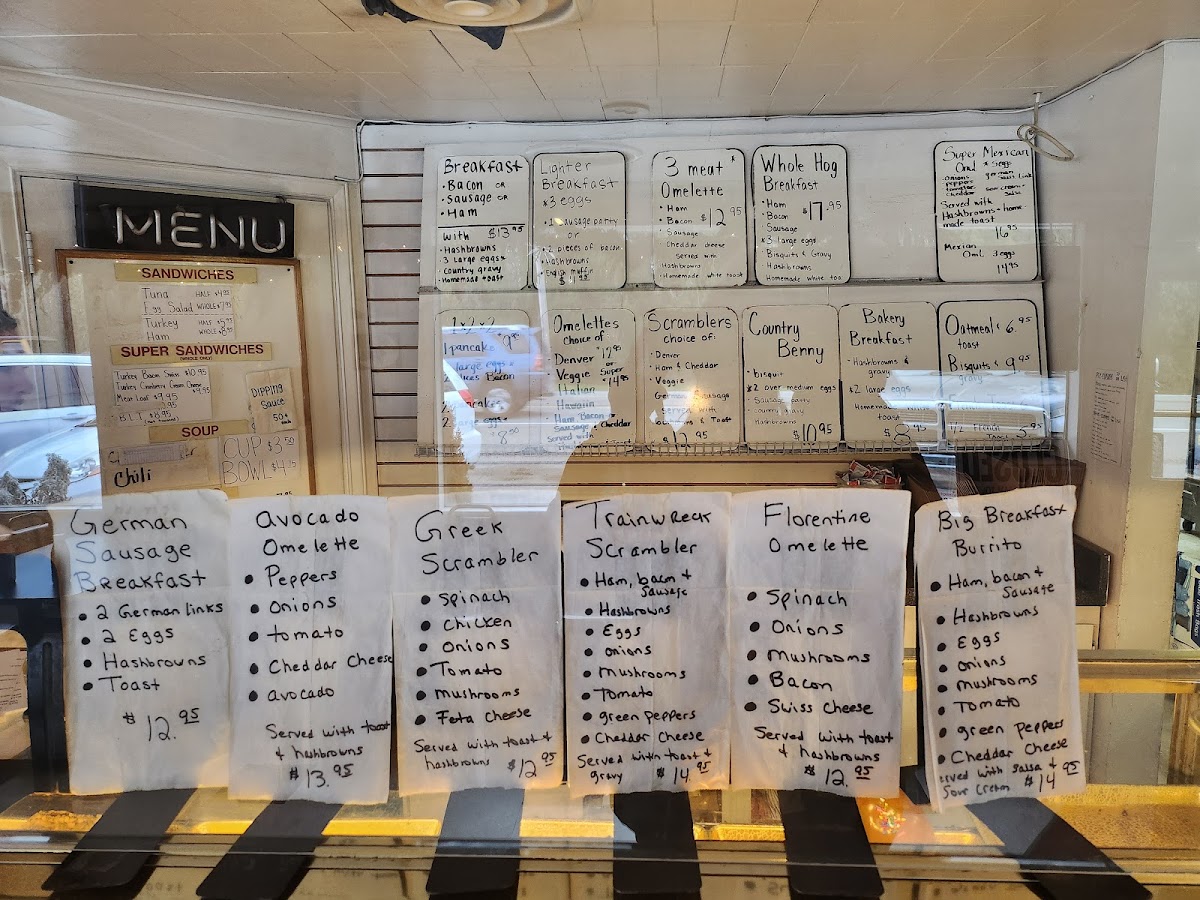 MENU
SANDWICHES
Tuna HALF $4.95
Egg Salad WHOLE $7.95
Turkey HALF $5.95
Ham WHOLE
SUPER SANDWICHES
(WHOLE ONLY)
Turkey Bacon Swiss $10.95
Turkey Cranberry Cream Cheese
Meat Loaf $9.95
B.L.T. $8.95
DIPPING
Sauce
50¢
SOUP
CUP $3.50
BOWL
Chili
Breakfast
• Bacon OR
• Sausage OR
• Ham
With $13.95
• Hashbrowns
• 3 Large eggs
• Country gravy
• Homemade toast
Lighter
Breakfast
3 eggs
• 1 sausage patty
or
• 2 pieces of bacon
• Hashbrowns
• English muffin
3 meat
Omelette
• Ham
• Bacon $12.95
• Sausage
Cheddar cheese
served with
Hashbrowns
Homemade white toast
Whole Hog
Breakfast
• Ham
• Bacon $17.95
Sausage
3 large eggs
Bisquits & Gravy
Hashbrowns
Homemade white toa
Super Mexican
Oml 5 eggs
onions
peppers
cheddar
german
sour cream
salsa
Served with
Hashbrowns - home
made toast
16.95
Mexican
Oml 3 eggs
14.95
1×2×2
1 pancake
2 large eggs
2 slices Bacon
$8.50
Omelettes
Choice of
Denver $12.95
Veggie or Super
Italian $14.95
Hawaiin
Ham Bacon
Sausage Cheddar
Served with
Scramblers
choice of:
• Denver
• Ham & Cheddar
• Veggie
German Sausage
Served with
& Toast
$12.95
Country
Benny
• bisquit
2 over medium eggs
Sausage patty
country gravy
Hashbrowns
$10.95
Bakery
Breakfast
• Hashbrowns &
gravy
2 large eggs
Homemade
toast
$8.95
Oatmeal $6.95
toast
Bisquits & $9.95
gravy
German
Sausage
Breakfast
• 2 German links
• 2 Eggs
• Hashbrowns
• Toast
$12.95
Avocado
Omelette
• Peppers
• Onions
• tomato
• Cheddar Cheese
• avocado
Served with toast
& hashbrowns
$13.95
Greek
Scrambler
• Spinach
• Chicken
• Onions
• Tomato
• Mushrooms
• Feta Cheese
Served with toast &
hashbrowns $12.95
Trainwreck
Scrambler
• Ham, bacon &
Sausage
• Hashbrowns
• Eggs
• onions
• Mushrooms
• Tomato
• green peppers
• Cheddar Cheese
Served with toast &
gravy $14.95
Florentine
Omelette
• Spinach
• Onions
• Mushrooms
• Bacon
• Swiss Cheese
Served with toast
& hashbrowns
$12.95
Big Breakfast
Burrito
• Ham, bacon &
Sausage
• Hashbrowns
• Eggs
• onions
• mushrooms
• Tomato
• green peppers
• Cheddar Cheese
Served with salsa &
Sour Cream $14.95